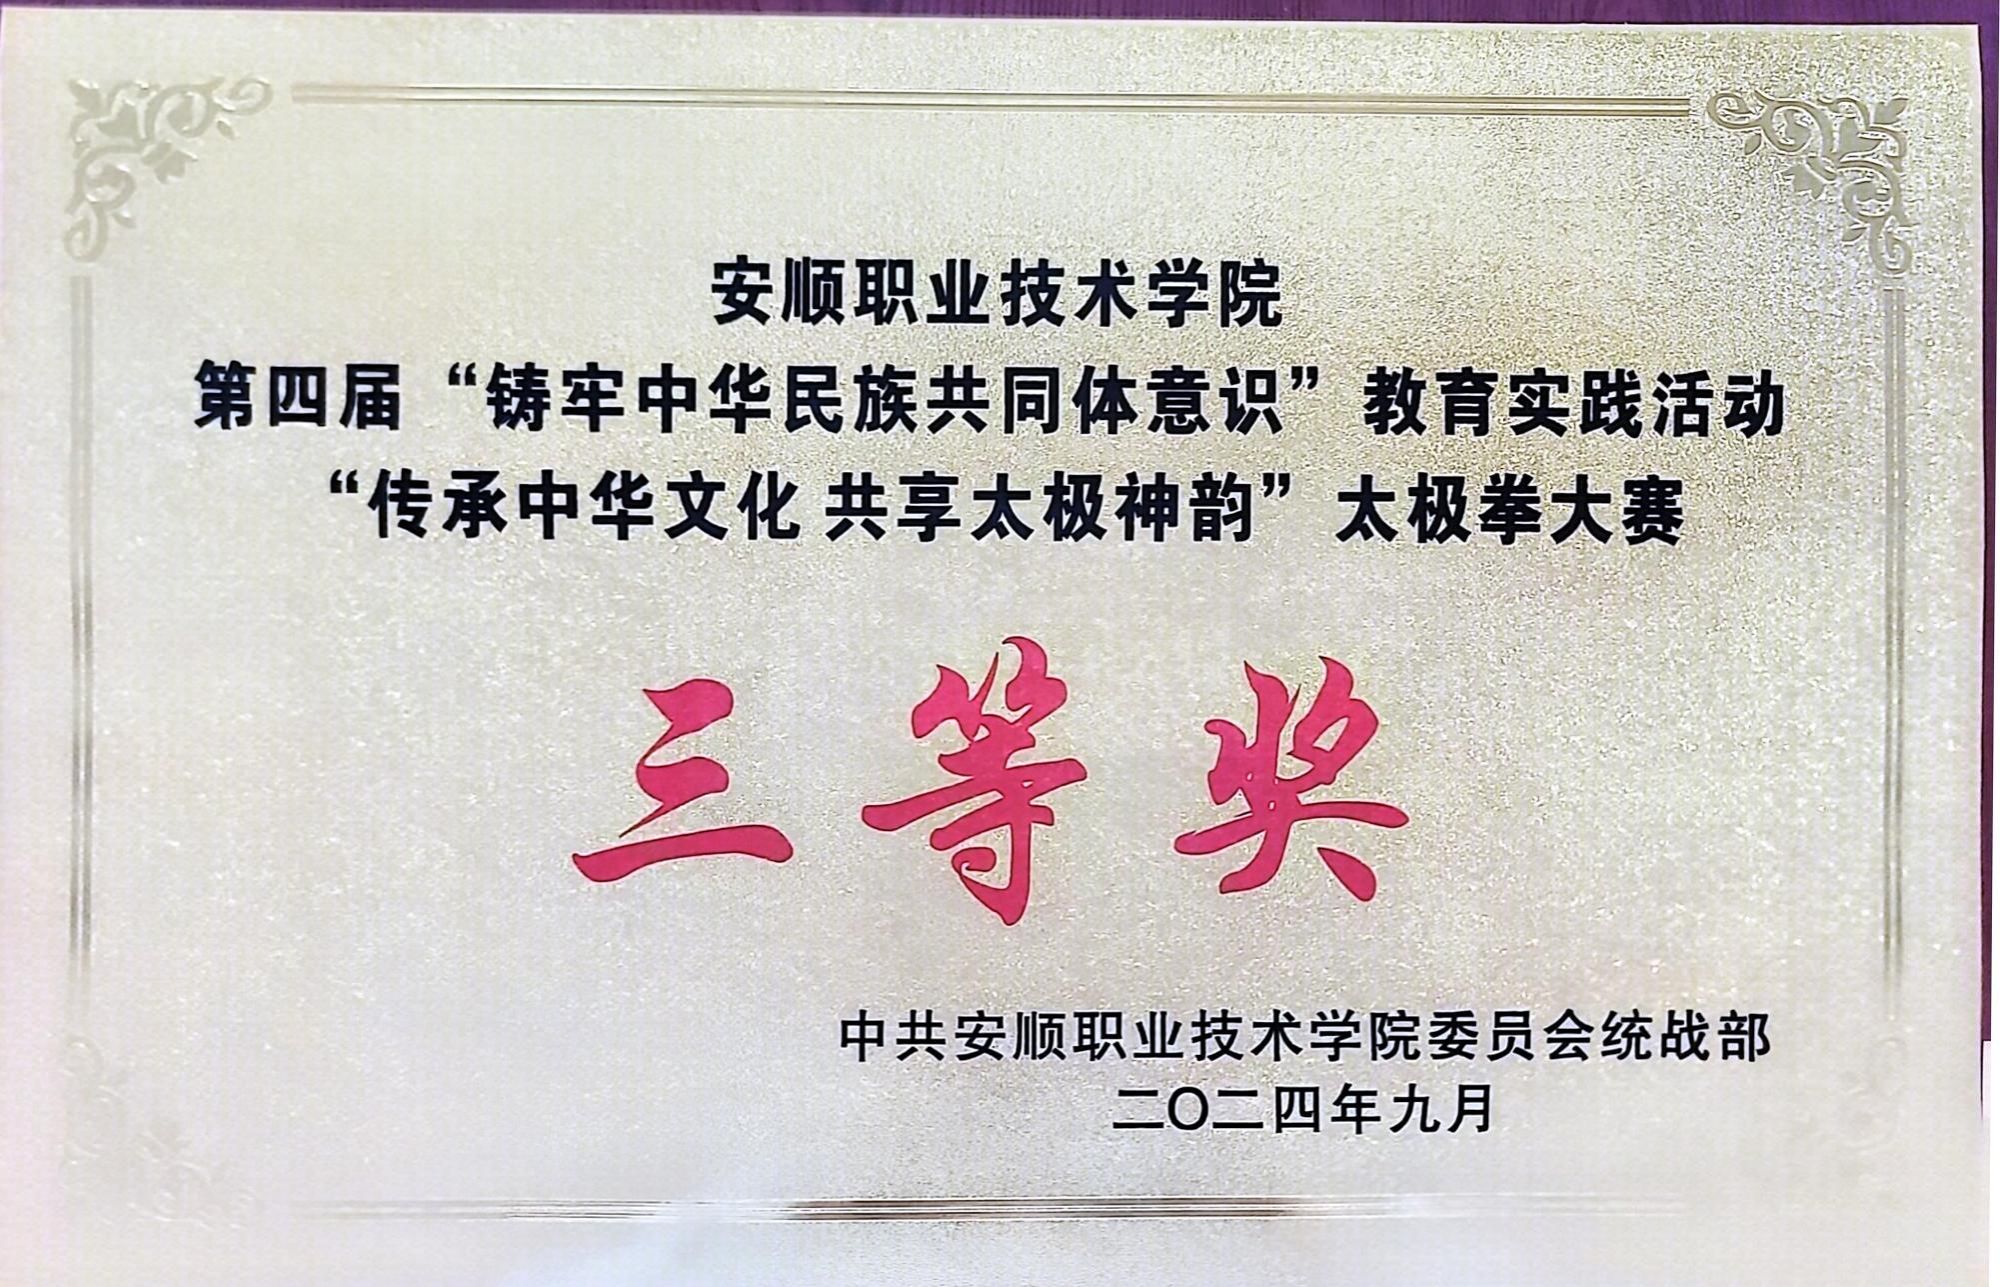 安顺职业技术学院
第四届“铸牢中华民族共同体意识”教育实践活动
“传承中华文化 共享太极神韵”太极拳大赛
三等奖
中共安顺职业技术学院委员会统战部
二〇二四年九月